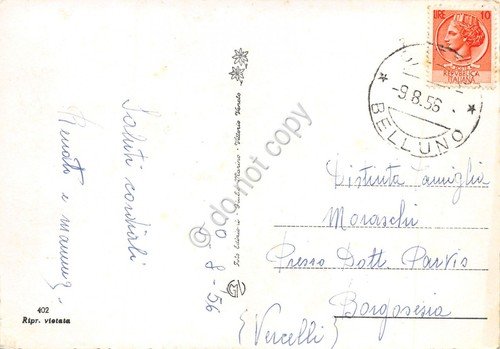 LIRE 10
REPVBBLICA
ITALIANA
-9.8.56
* BELLUNO *
Saluti cordiali
Renato e
8-56
Distinta Famiglia
Moraschi
Presso Dott. Parvis
Borgosesia
(Vercelli)
Vittorio Veneto
© do not copy
402
Ripr. vietata